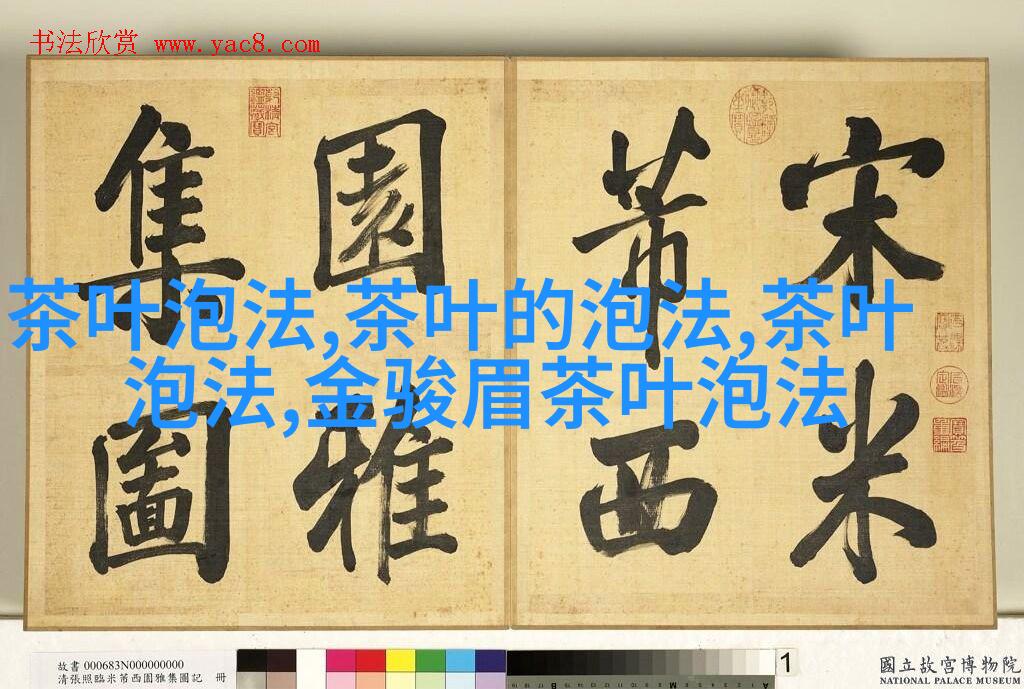 书法欣赏 www.yac8.com
宋米
芾西
園雅
集圖
茶叶泡法,茶叶的泡法,茶叶
泡法,金骏眉茶叶泡法
故書 000683N000000000
清張照臨米芾西園雅集圖記 冊
1
國立故宮博物院
NATIONAL PALACE MUSEUM